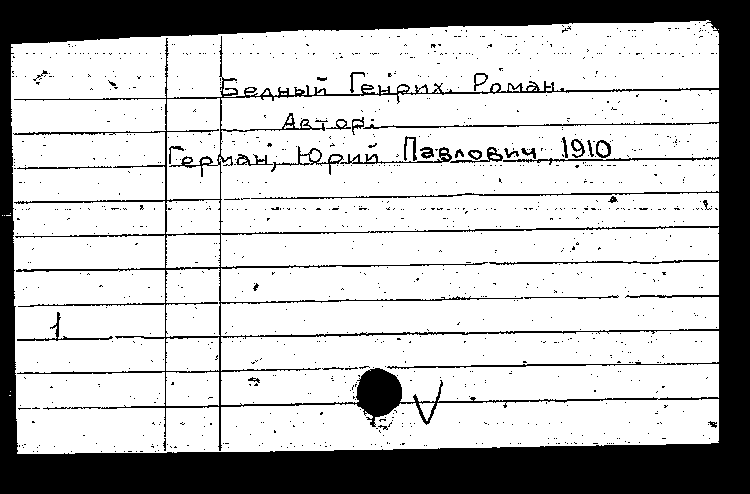 Бедный Генрих. Роман.
Автор:
Герман, Юрий Павлович, 1910
1
V